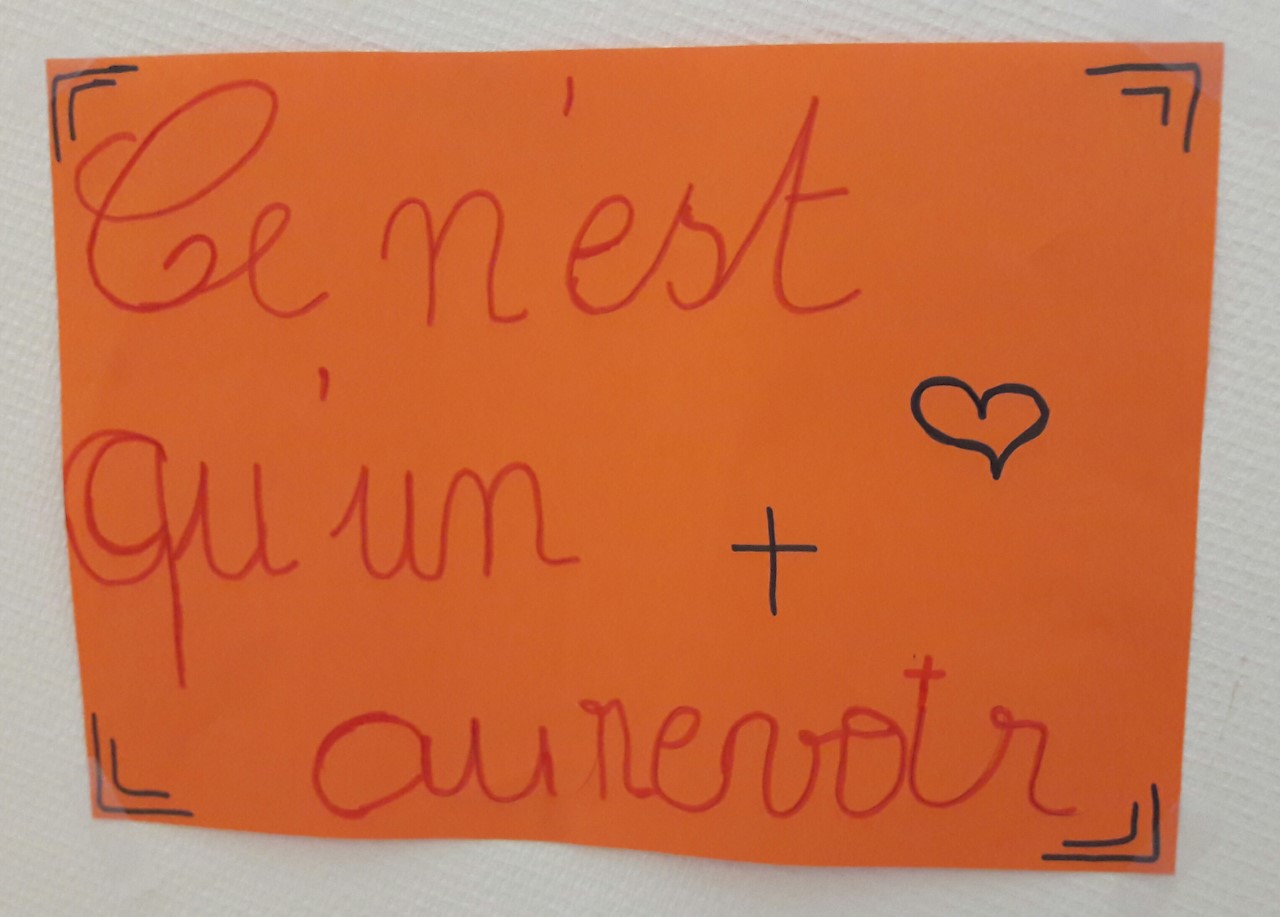 Ce n'est
qu'un
aurevotr